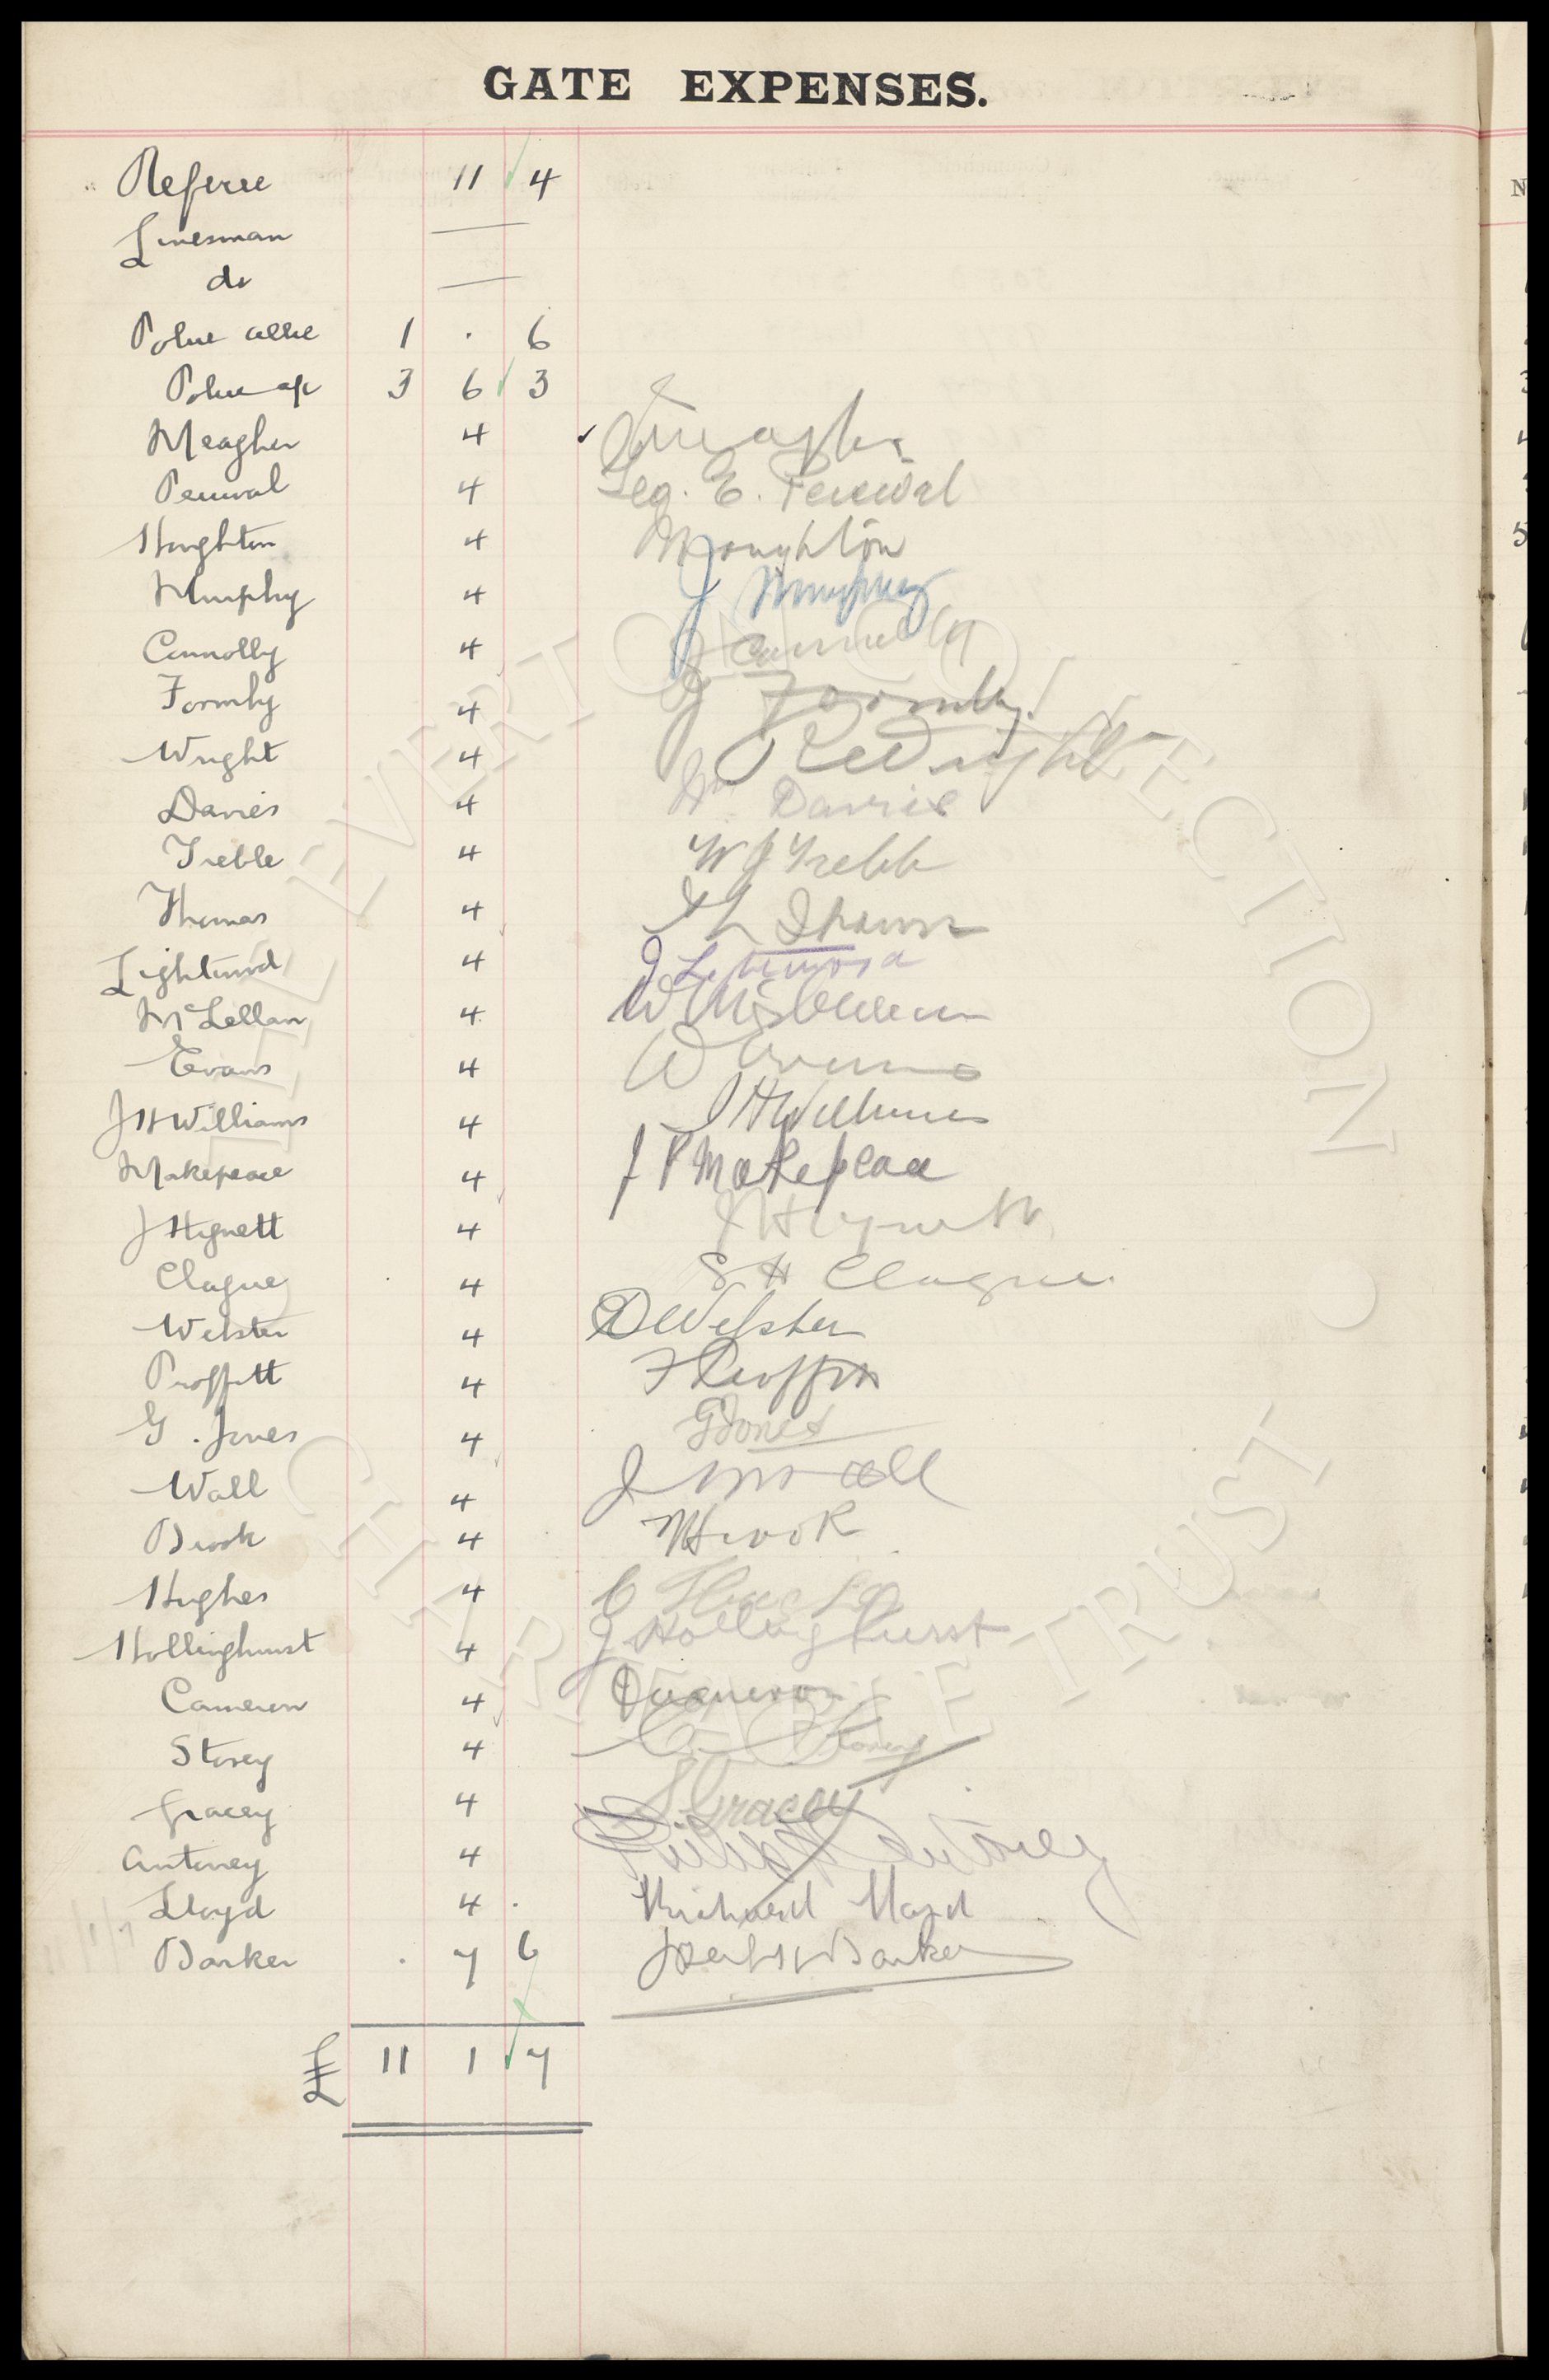 GATE EXPENSES.
Referee 11 4
Linesman —
do —
Police 1 . 6
Police 3 6 3
Meagher 4
Percival 4 Geo. E. Percival
Houghton 4 Houghton
Murphy 4 J Murphy
Connolly 4 J Connolly
Formby 4 J Formby
Wright 4 R Wright
Davies 4 Wm Davies
Treble 4 W J Treble
Thomas 4 Thomas
Lightwood 4 J
McLellan 4 W McLellan
Evans 4 W Evans
J H Williams 4 J H Williams
Makepeace 4 J P Makepeace
J Hignett 4 J Hignett
Clague 4 S H Clague
Webster 4 D Webster
Proffitt 4 F Proffitt
G. Jones 4 G Jones
Wall 4 J Wall
Brook 4 Brook
Hughes 4 Hughes
Hollinghurst 4 J Hollinghurst
Cameron 4 D Cameron
Storey 4 C Storey
Gracey 4 S Gracey
Antoney 4 Antoney
Lloyd 4 . Richard Lloyd
Barker . 7 6 Joseph H Barker
£ 11 1 7
THE EVERTON COLLECTION CHARITABLE TRUST